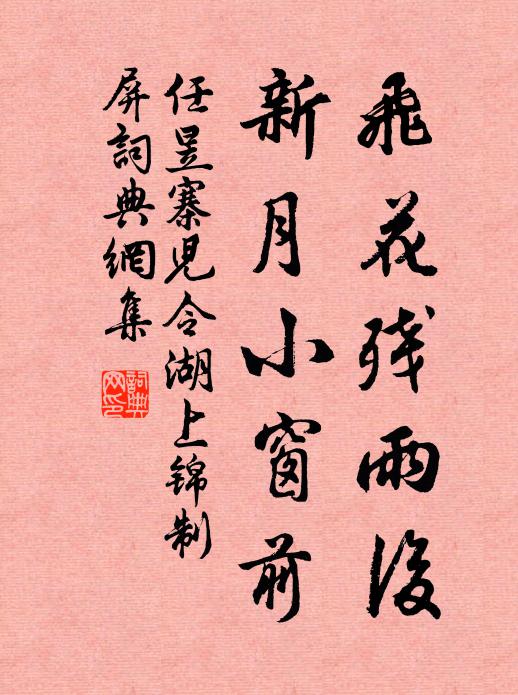 飛花殘雨後
新月小窗前
任昱寨児令湖上錦制
屏詞典網集
詞典
网印